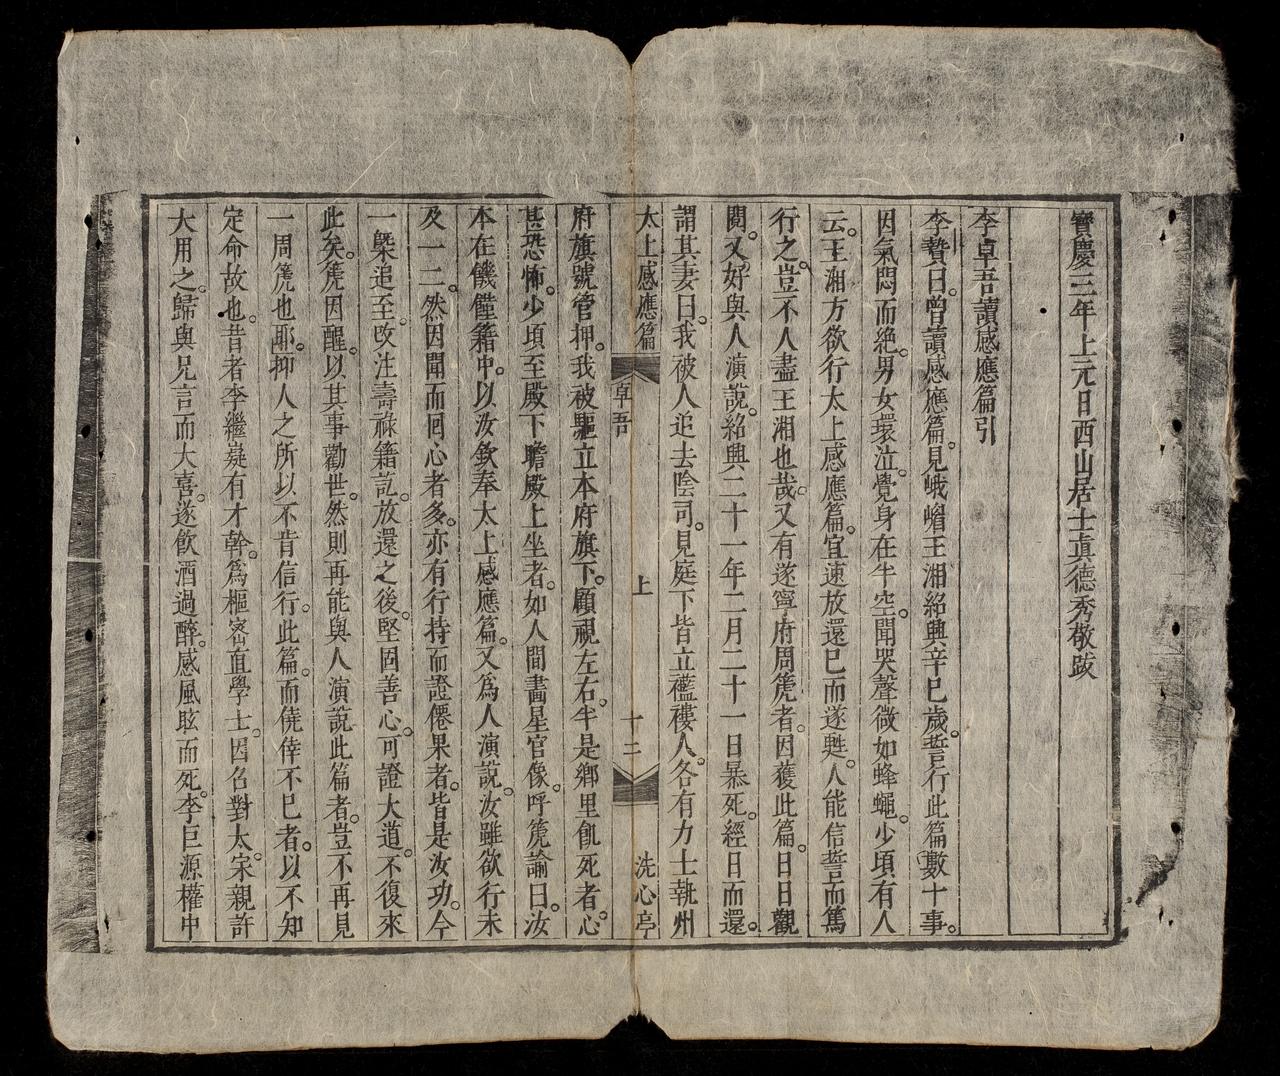 寶慶三年上元日西山居士真德秀敬跋
李卓吾讀感應篇引
李贄曰。曾讀感應篇。見峨嵋王湘紹興辛巳歲。誓行此篇數十事。
因氣悶而絶。男女環泣。覺身在半空。聞哭聲微如蜂蠅。少頃有人
云。王湘方欲行太上感應篇。宜速放還。已而遂甦。人能信誓而篤
行之。豈不人盡王湘也哉。又有遂寧府周箎者。因獲此篇。日日觀
閱。又好與人演說。紹興二十一年二月二十一日暴死。經日而還。
謂其妻曰。我被人追去陰司。見庭下皆立襤褸人。各有力士執州
太上感應篇 卓吾 上 十二 洗心亭
府旗號管押。我被驅立本府旗下。顧視左右。半是鄉里飢死者。心
甚恐怖。少頃至殿下。瞻殿上坐者。如人間畫星官像。呼箎諭曰。汝
本在饑饉籍中。以汝欽奉太上感應篇。又為人演說。汝雖欲行未
及一二。然因聞而回心者多。亦有行持而證僊果者。皆是汝功。今
一槩追至。攺注壽祿籍訖。放還之後。堅固善心。可證大道。不復來
此矣。箎因醒。以其事勸世。然則再能與人演說此篇者。豈不再見
一周箎也耶。抑人之所以不肯信行此篇。而僥倖不已者。以不知
定命故也。昔者李繼凝有才幹。為樞密直學士。因召對太宗。親許
大用之。歸與兄言而大喜。遂飲酒過醉。感風眩而死。李巨源權中